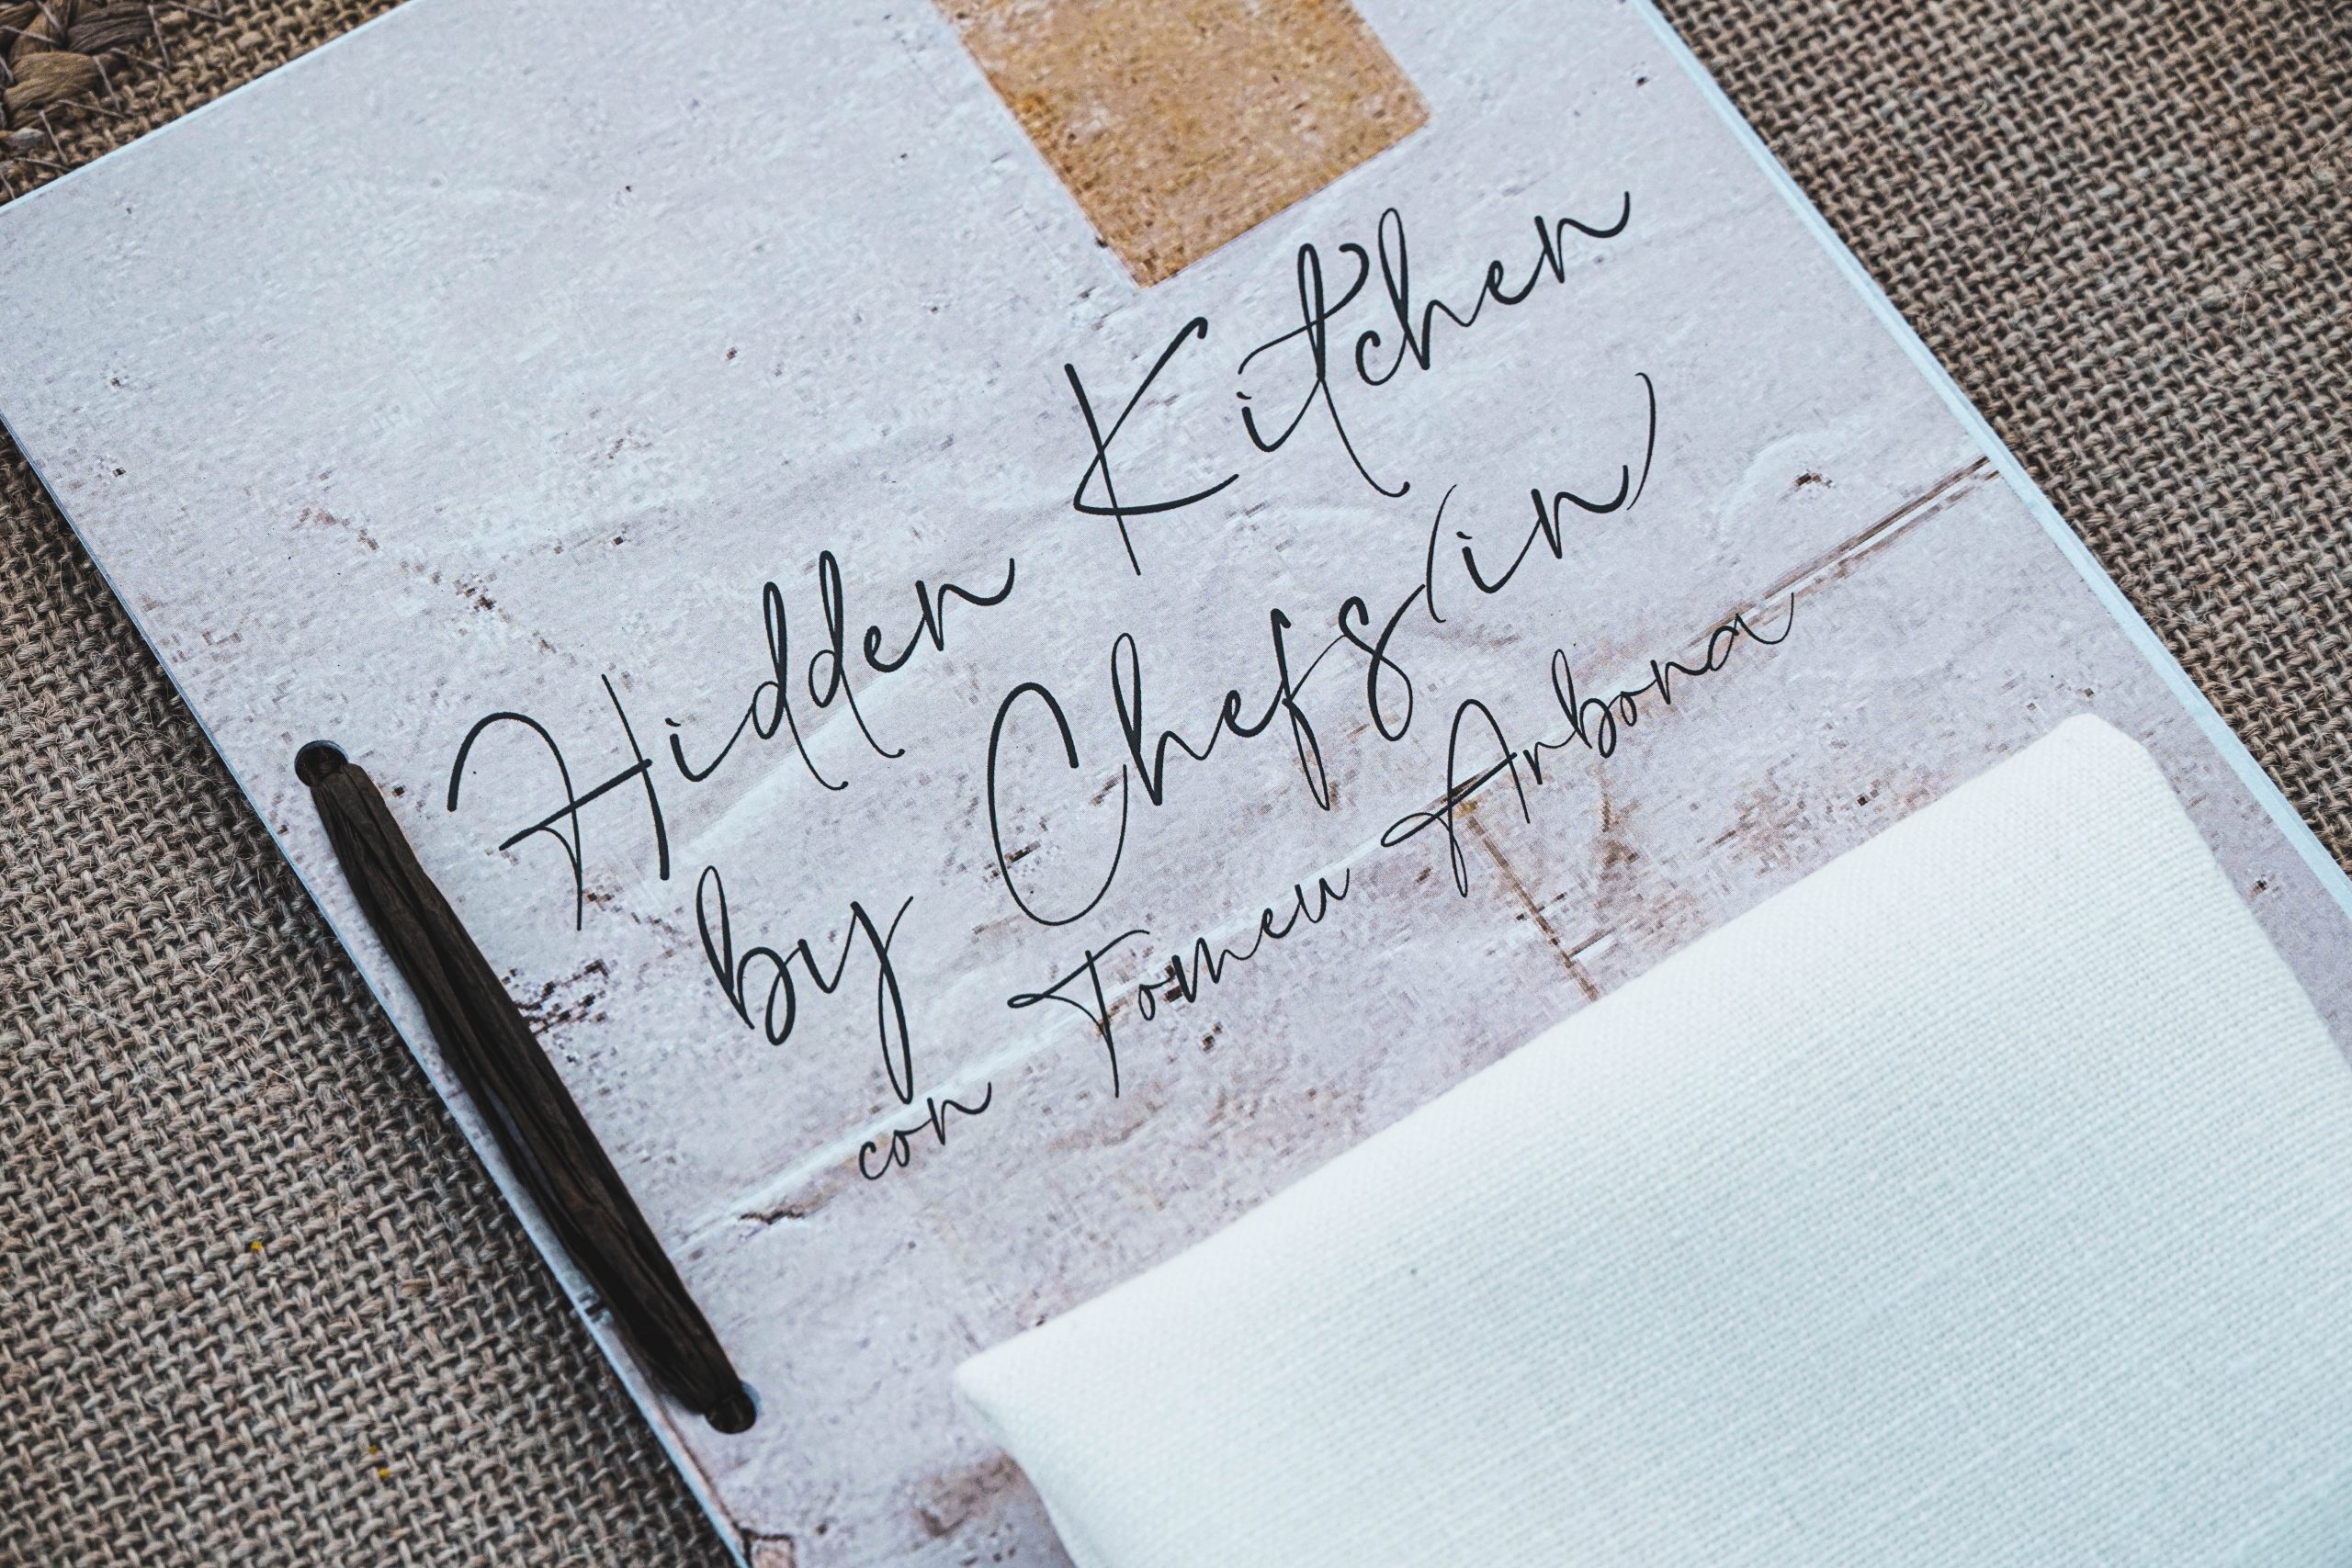 Hidden Kitchen
by Chefs(in)
con Tomeu Arbona